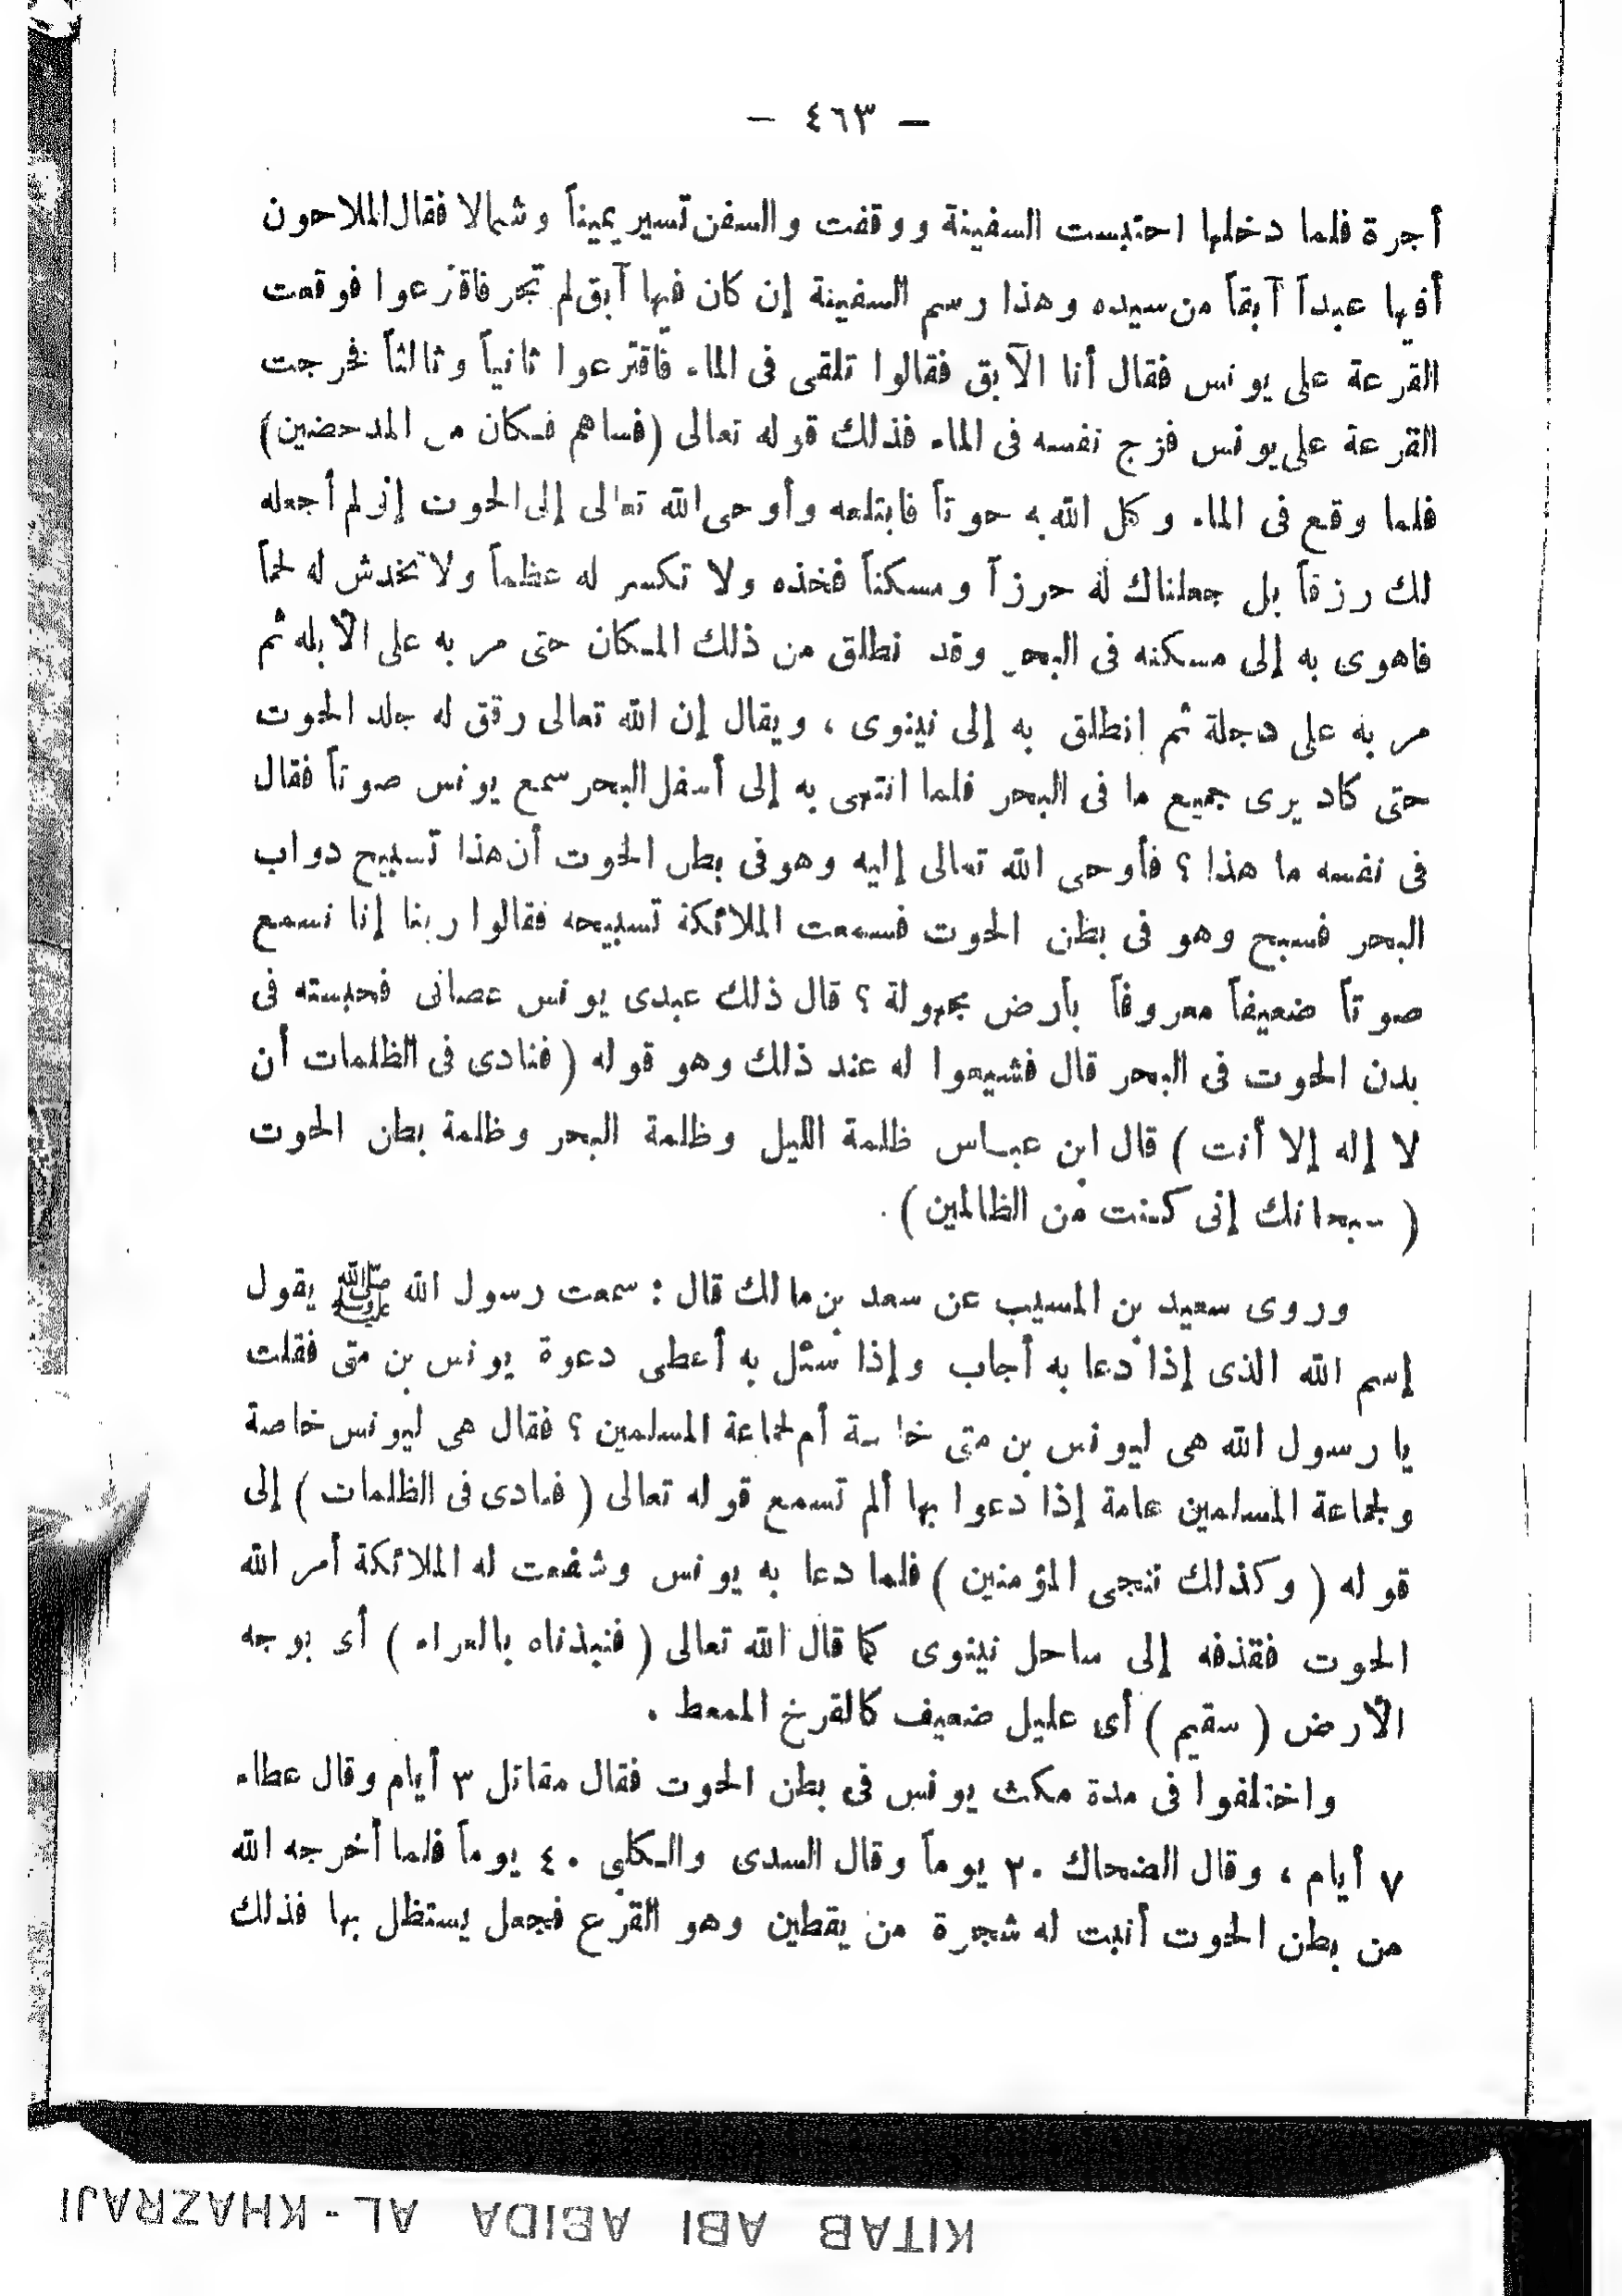 — ٤٦٣ —
أجرة فلما دخلها احتبست السفينة ووقفت والسفن تسير يميناً وشمالا فقال الملاحون
أفيها عبداً آبقاً من سيده وهذا رسم السفينة إن كان فيها آبق لم تجر فاقترعوا فوقعت
القرعة على يونس فقال أنا الآبق فقالوا تلقى فى الماء فاقترعوا ثانياً وثالثاً فخرجت
القرعة على يونس فزج نفسه فى الماء فذلك قوله تعالى (فساهم فكان من المدحضين)
فلما وقع فى الماء وكل الله به حوتاً فابتلعه وأوحى الله تعالى إلى الحوت إنى لم أجعله
لك رزقاً بل جعلناك له حرزاً ومسكناً فخذه ولا تكسر له عظماً ولا تخدش له لحماً
فاهوى به إلى مسكنه فى البحر وقد نطلق من ذلك المكان حتى مر به على الأبله ثم
مر به على دجلة ثم إنطلق به إلى نينوى ، ويقال إن الله تعالى رقق له جلد الحوت
حتى كاد يرى جميع ما فى البحر فلما انتهى به إلى أسفل البحر سمع يونس صوتاً فقال
فى نفسه ما هذا ؟ فأوحى الله تعالى إليه وهو فى بطن الحوت أن هذا تسبيح دواب
البحر فسبح وهو فى بطن الحوت فسمعت الملائكة تسبيحه فقالوا ربنا إنا نسمع
صوتاً ضعيفاً معروفاً بأرض مجهولة ؟ قال ذلك عبدى يونس عصانى فحبسته فى
بدن الحوت فى البحر قال فشيعوا له عند ذلك وهو قوله ( فنادى فى الظلمات أن
لا إله إلا أنت ) قال ابن عباس ظلمة الليل وظلمة البحر وظلمة بطن الحوت
( سبحانك إنى كنت من الظالمين ) .
وروى سعيد بن المسيب عن سعد بن مالك قال : سمعت رسول الله ﷺ يقول
إسم الله الذى إذا دعا به أجاب وإذا سئل به أعطى دعوة يونس بن متى فقلت
يا رسول الله هى ليونس بن متى خاصة أم لجماعة المسلمين ؟ فقال هى ليونس خاصة
ولجماعة المسلمين عامة إذا دعوا بها ألم تسمع قوله تعالى ( فنادى فى الظلمات ) إلى
قوله ( وكذلك ننجى المؤمنين ) فلما دعا به يونس وشفعت له الملائكة أمر الله
الحوت فقذفه إلى ساحل نينوى كما قال الله تعالى ( فنبذناه بالعراء ) أى بوجه
الأرض ( سقيم ) أى عليل ضعيف كالفرخ الممعط .
واختلفوا فى مدة مكث يونس فى بطن الحوت فقال مقاتل ٣ أيام وقال عطاء
٧ أيام ، وقال الضحاك ٢٠ يوماً وقال السدى والكلبى ٤٠ يوماً فلما أخرجه الله
من بطن الحوت أنبت له شجرة من يقطين وهو القرع فجعل يستظل بها فذلك
KITAB ABI ABIDA AL-KHAZRAJI